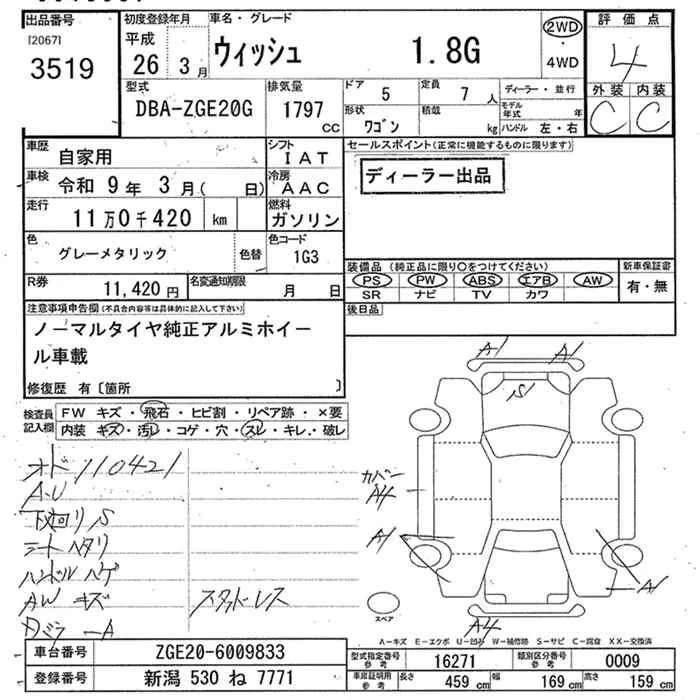 出品番号
[2067]
3519
初度登録年月
平成
26年3月
車名・グレード
ウィッシュ 1.8G
2WD
4WD
評価点
4
外装 内装
C C
型式
DBA-ZGE20G
排気量
1797 CC
ドア 5
定員 7人
形状 ワゴン
積載 kg
ディーラー・並行
モデル年式 年
ハンドル 左・右
車歴 自家用
シフト IAT
車検 令和9年3月( 日)
冷房 AAC
走行 11万0千420 km
燃料 ガソリン
色 グレーメタリック 色替
色コード 1G3
R券 11,420円
名変通知期限 月 日
セールスポイント(正常に機能するものに限ります)
ディーラー出品
装備品(純正品に限り〇をつけてください)
PS PW ABS エアB AW
SR ナビ TV カワ
新車保証書
有・無
後日品
注意事項申告欄(不具合内容等は具体的に記入して下さい)
ノーマルタイヤ純正アルミホイー
ル車載
修復歴 有〔箇所 〕
検査員記入欄
FW キズ・飛石・ヒビ割・リペア跡・×要
内装 キズ・汚レ・コゲ・穴・スレ・キレ・破レ
オド110421
A・U
下廻りS
シートヘタリ
ハンドルハゲ
AW キズ
スタッドレス
A1 A1
S
カバー
A4
A1
A1
A4
スペア
A-キズ E-エクボ U-凹み W-補修跡 S-サビ C-腐食 XX-交換済
車台番号 ZGE20-6009833
登録番号 新潟 530 ね 7771
型式指定番号 参考 16271
類別区分番号 参考 0009
車庫証明用 参考 長さ 459 cm 幅 169 cm 高さ 159 cm